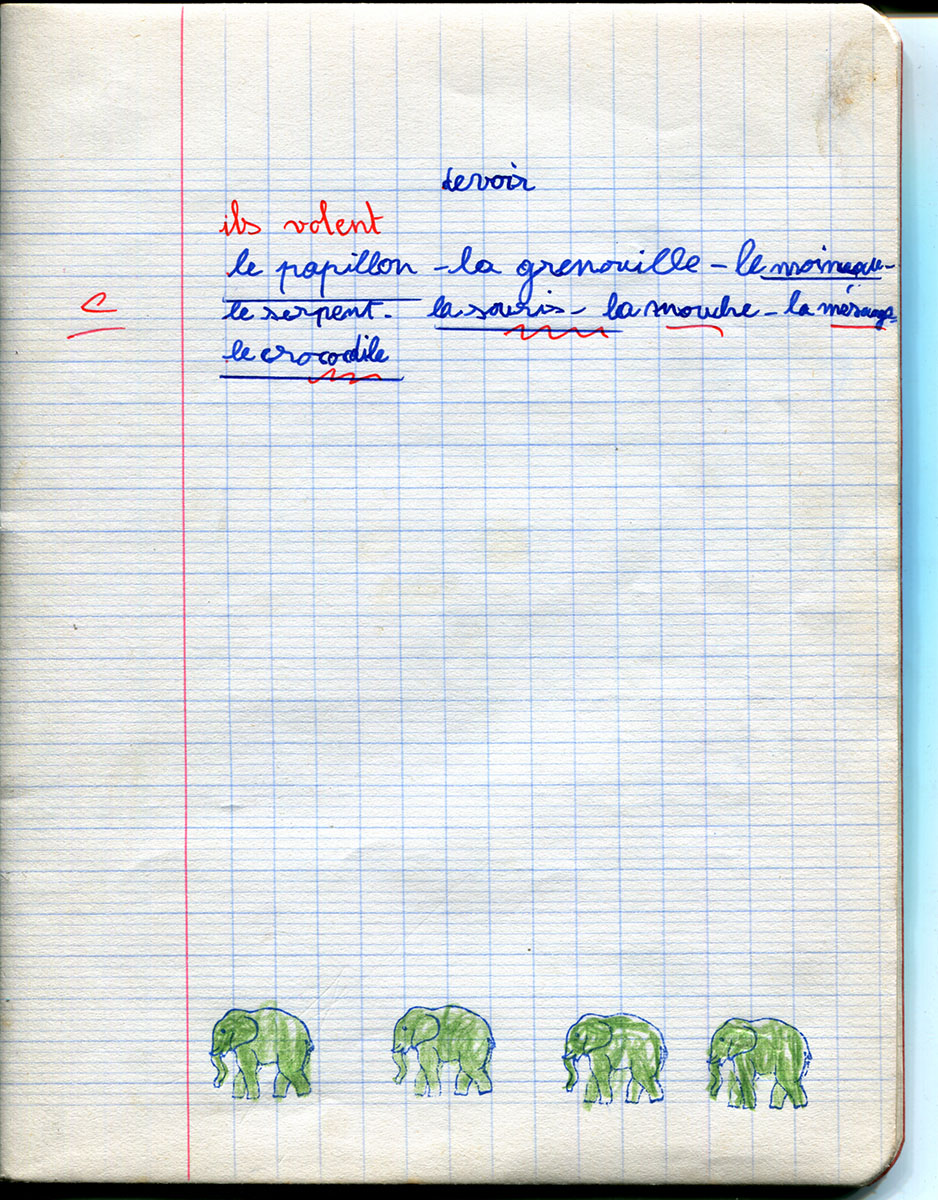 devoir
ils volent
le papillon - la grenouille - le
C
le serpent - la souris - la mouche - la mésange
le crocodile